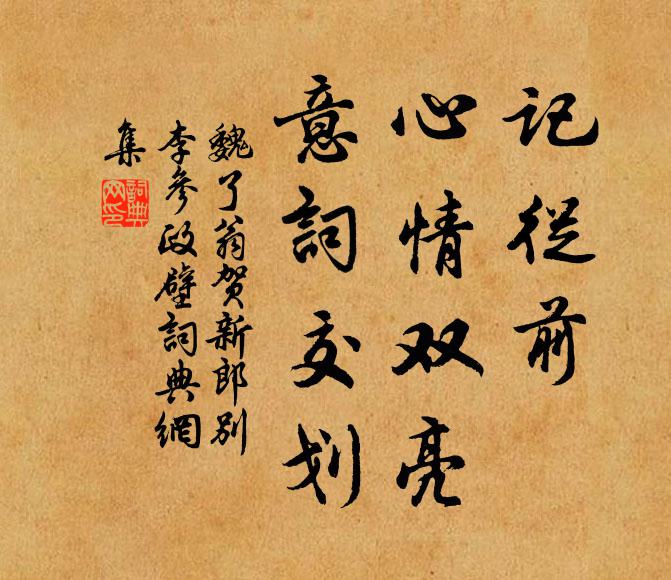 记從前
心情双亮
意詞交划
魏了翁贺新郎别
李參政壁詞典網
集
詞典网印